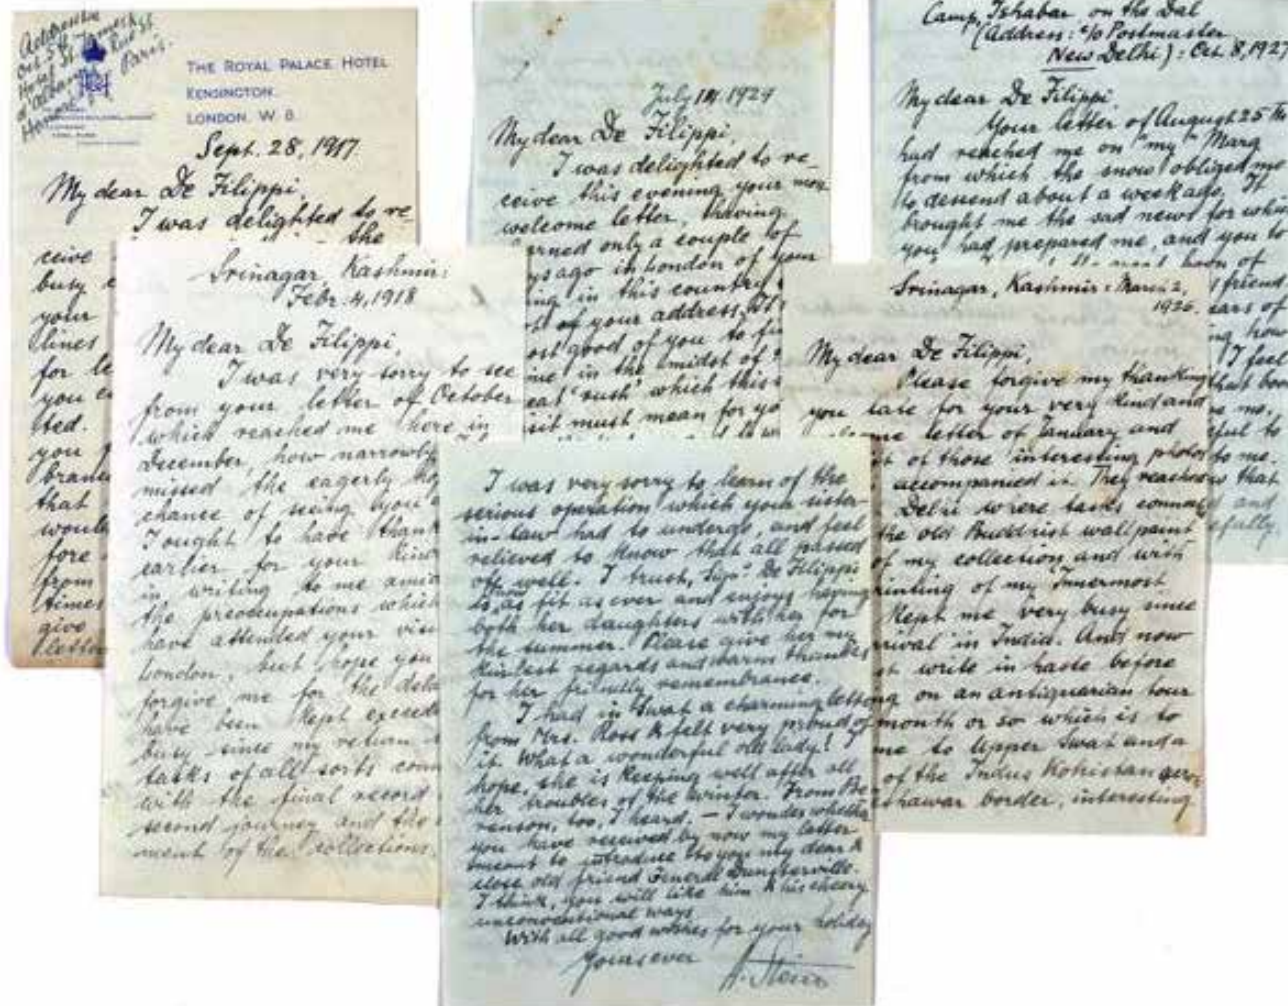 Address
Oct. 2
Hotel St James &
d'Albany Rue St.
Honoré Paris.
THE ROYAL PALACE HOTEL
KENSINGTON
LONDON. W 8.
Sept. 28, 1917
My dear De Filippi,
I was delighted to re-
ceive the
busy
your
lines
for le
you
ted.
you
that
woul
fore
from
times
give
letter
Srinagar, Kashmir:
Febr. 4, 1918
My dear De Filippi,
I was very sorry to see
from your letter of October
which reached me here in
December, how narrowly
missed the eagerly ho
chance of seeing you
I ought to have thank
earlier for your kind
in writing to me amid
the preoccupations which
have attended your visi
London, but hope you
forgive me for the dela
have been kept exceed
busy since my return
tasks of all sorts conn
with the final record
second journey and the
ment of the collections.
July 14, 1924
My dear De Filippi,
I was delighted to re-
ceive this evening your most
welcome letter, having
earned only a couple of
ys ago in London of your
ing in this country
st of your address. It
ost good of you to fi
me in the midst of
eat 'rush' which this
sit must mean for yo
I was very sorry to learn of the
serious operation which your sister-
in-law had to undergo, and feel
relieved to know that all passed
off well. I trust, Sigra De Filippi
is now as fit as ever and enjoys having
both her daughters with her for
the summer. Please give her my
kindest regards and warm thanks
for her friendly remembrance.
I had in Swat a charming letter
from Mrs. Ross & felt very proud of
it. What a wonderful old lady! I
hope, she is keeping well after all
her troubles of the winter. From Be
renson, too, I heard. – I wonder whether
you have received by now my letter
meant to introduce to you my dear &
close old friend General Dunsterville.
I think, you will like him & his cheery
unconventional ways.
With all good wishes for your holiday
Yours ever
A. Stein
Camp, Ishabar on the Dal
(Address: c/o Postmaster
New Delhi): Oct. 8, 1927
My dear De Filippi,
Your letter of August 25th
had reached me on "my" Marg
from which the snow obliged me
to descend about a week ago. It
brought me the sad news for which
you had prepared me, and you to
friend
ears of
hou
I feel
that bo
me.
ful to
to me.
that
and
efully
Srinagar, Kashmir: March 2,
1926.
My dear De Filippi,
Please forgive my thanking
you late for your very kind and
welcome letter of January and
of those interesting photos
accompanied it. They reached
Delhi where tasks connec
the old Buddhist wall paint
of my collection and with
rinting of my Innermost
kept me very busy since
rrival in India. And now
st write in haste before
ng on an antiquarian tour
month or so which is to
me to Upper Swat and a
of the Indus Kohistan
hawar border, interesting